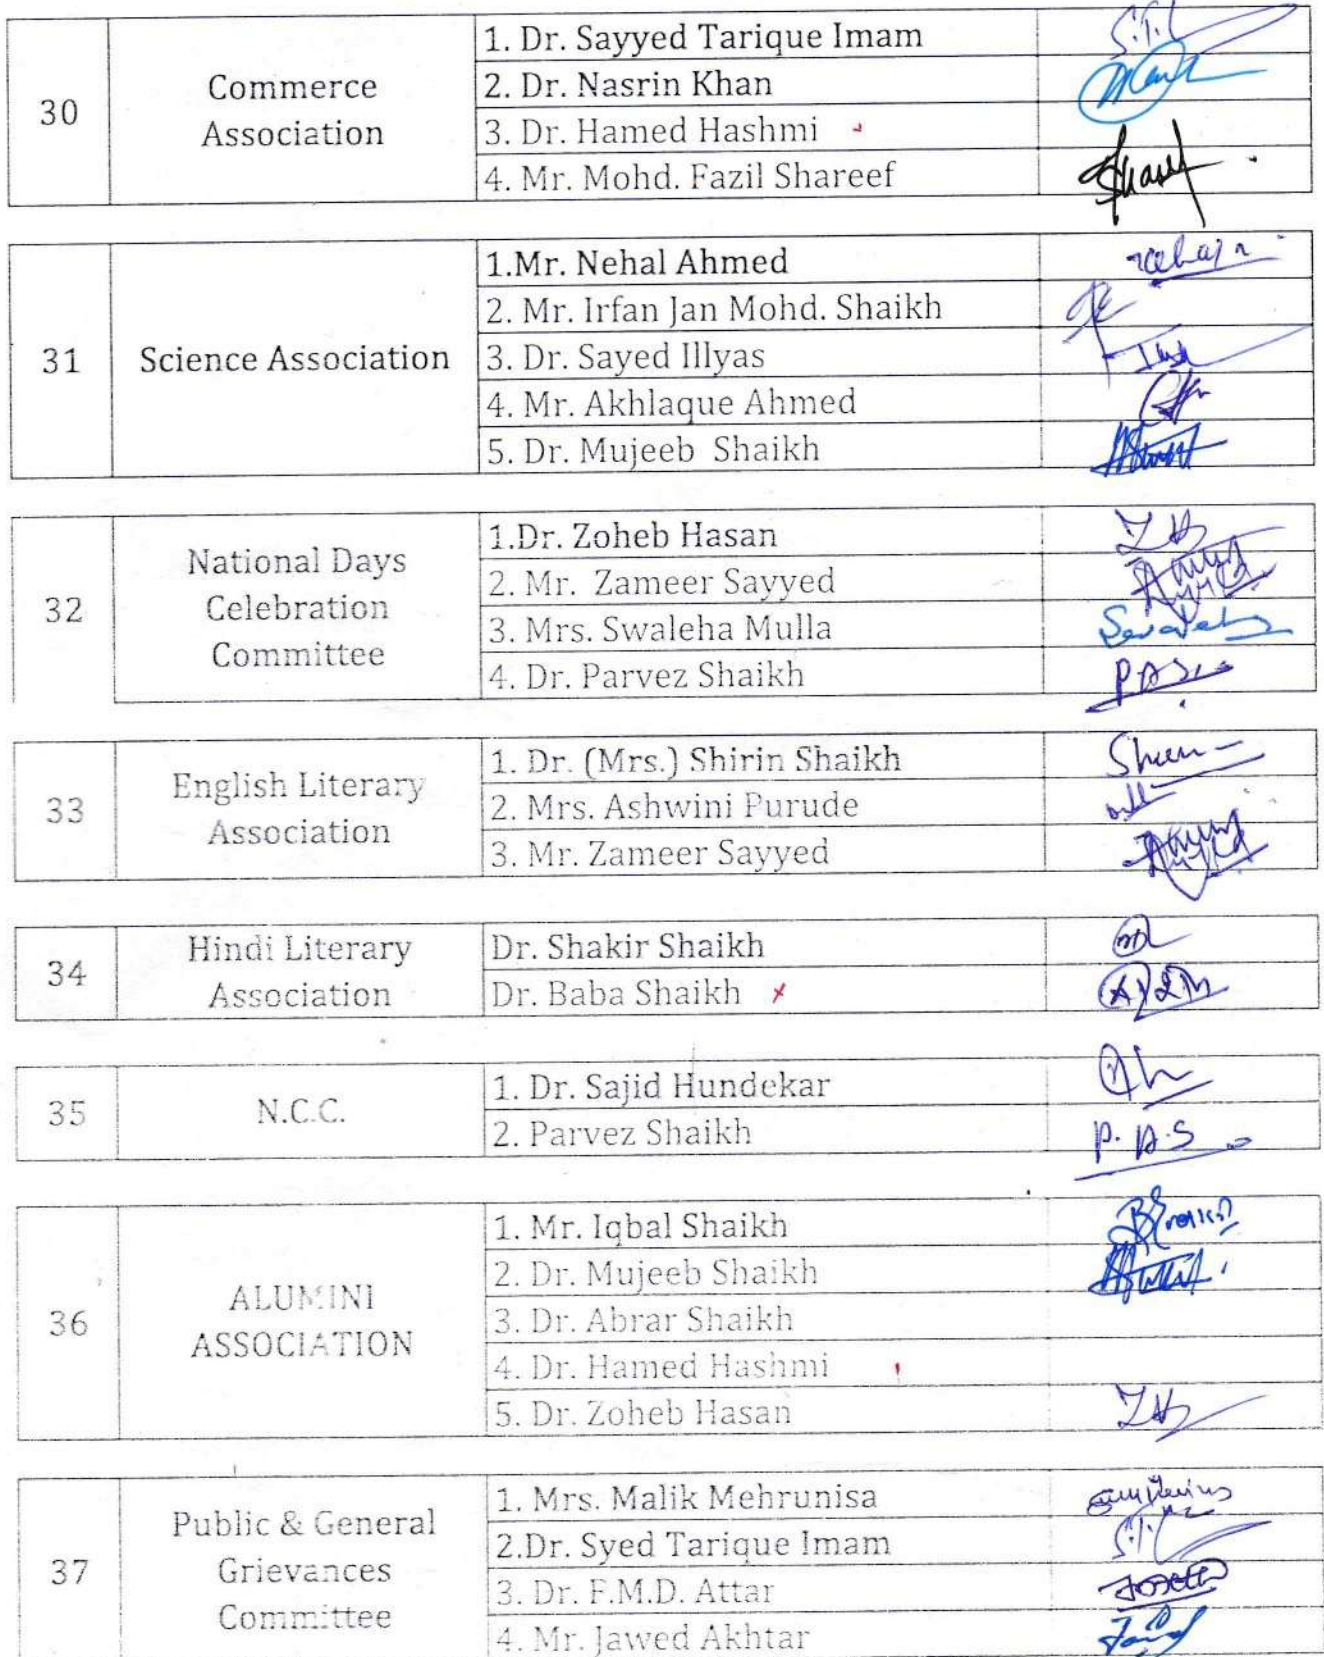 30
Commerce
Association
1. Dr. Sayyed Tarique Imam
2. Dr. Nasrin Khan
3. Dr. Hamed Hashmi
4. Mr. Mohd. Fazil Shareef
31
Science Association
1.Mr. Nehal Ahmed
2. Mr. Irfan Jan Mohd. Shaikh
3. Dr. Sayed Illyas
4. Mr. Akhlaque Ahmed
5. Dr. Mujeeb Shaikh
32
National Days
Celebration
Committee
1.Dr. Zoheb Hasan
2. Mr. Zameer Sayyed
3. Mrs. Swaleha Mulla
4. Dr. Parvez Shaikh
33
English Literary
Association
1. Dr. (Mrs.) Shirin Shaikh
2. Mrs. Ashwini Purude
3. Mr. Zameer Sayyed
34
Hindi Literary
Association
Dr. Shakir Shaikh
Dr. Baba Shaikh
35
N.C.C.
1. Dr. Sajid Hundekar
2. Parvez Shaikh
P. A. S
36
ALUMINI
ASSOCIATION
1. Mr. Iqbal Shaikh
2. Dr. Mujeeb Shaikh
3. Dr. Abrar Shaikh
4. Dr. Hamed Hashmi
5. Dr. Zoheb Hasan
37
Public & General
Grievances
Committee
1. Mrs. Malik Mehrunisa
2.Dr. Syed Tarique Imam
3. Dr. F.M.D. Attar
4. Mr. Jawed Akhtar